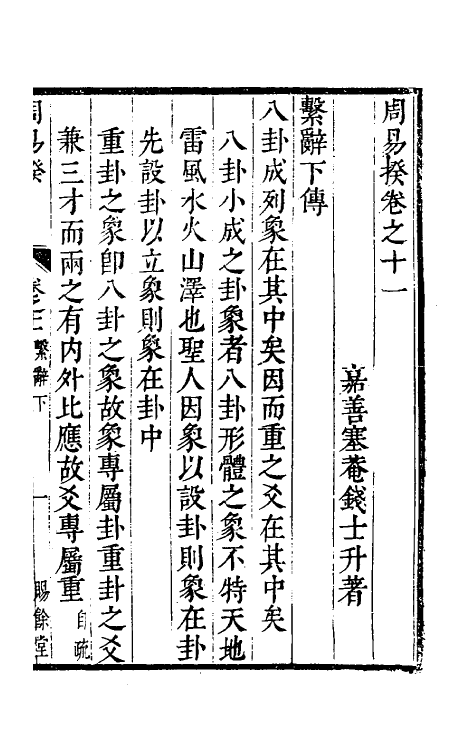 周易揆卷之十一
嘉善塞菴錢士升著
繫辭下傳
八卦成列象在其中矣因而重之爻在其中矣
八卦小成之卦象者八卦形體之象不特天地
雷風水火山澤也聖人因象以設卦則象在卦
先設卦以立象則象在卦中
重卦之象卽八卦之象故象專屬卦重卦之爻
兼三才而兩之有内外比應故爻專屬重自疏
周易揆
繫辭下
一
賜餘堂